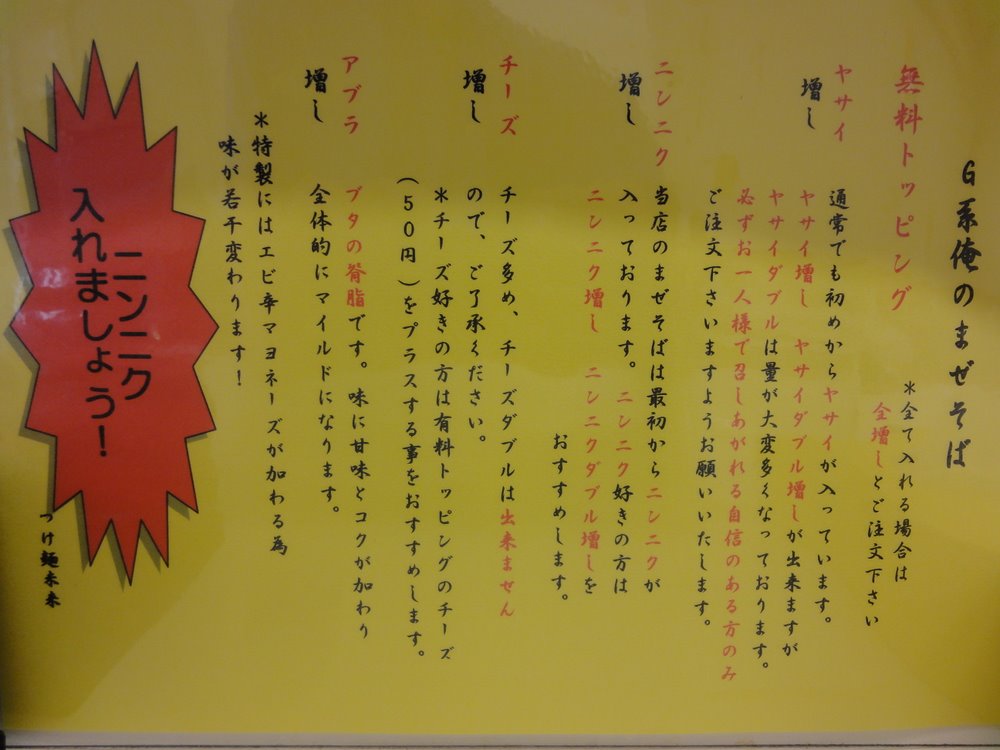 G系俺のまぜそば
無料トッピング
＊全て入れる場合は
全増しとご注文下さい
ヤサイ
増し
通常でも初めからヤサイが入っています。
ヤサイ増し　ヤサイダブル増しが出来ますが
ヤサイダブルは量が大変多くなっております。
必ずお一人様で召しあがれる自信のある方のみ
ご注文下さいますようお願いいたします。
ニンニク
増し
当店のまぜそばは最初からニンニクが
入っております。　ニンニク好きの方は
ニンニク増し　ニンニクダブル増しを
おすすめします。
チーズ
増し
チーズ多め、チーズダブルは出来ません
ので、ご了承ください。
＊チーズ好きの方は有料トッピングのチーズ
（５０円）をプラスする事をおすすめします。
アブラ
増し
ブタの脊脂です。味に甘味とコクが加わり
全体的にマイルドになります。
＊特製にはエビ辛マヨネーズが加わる為
味が若干変わります！
ニンニク
入れましょう！
つけ麺未来